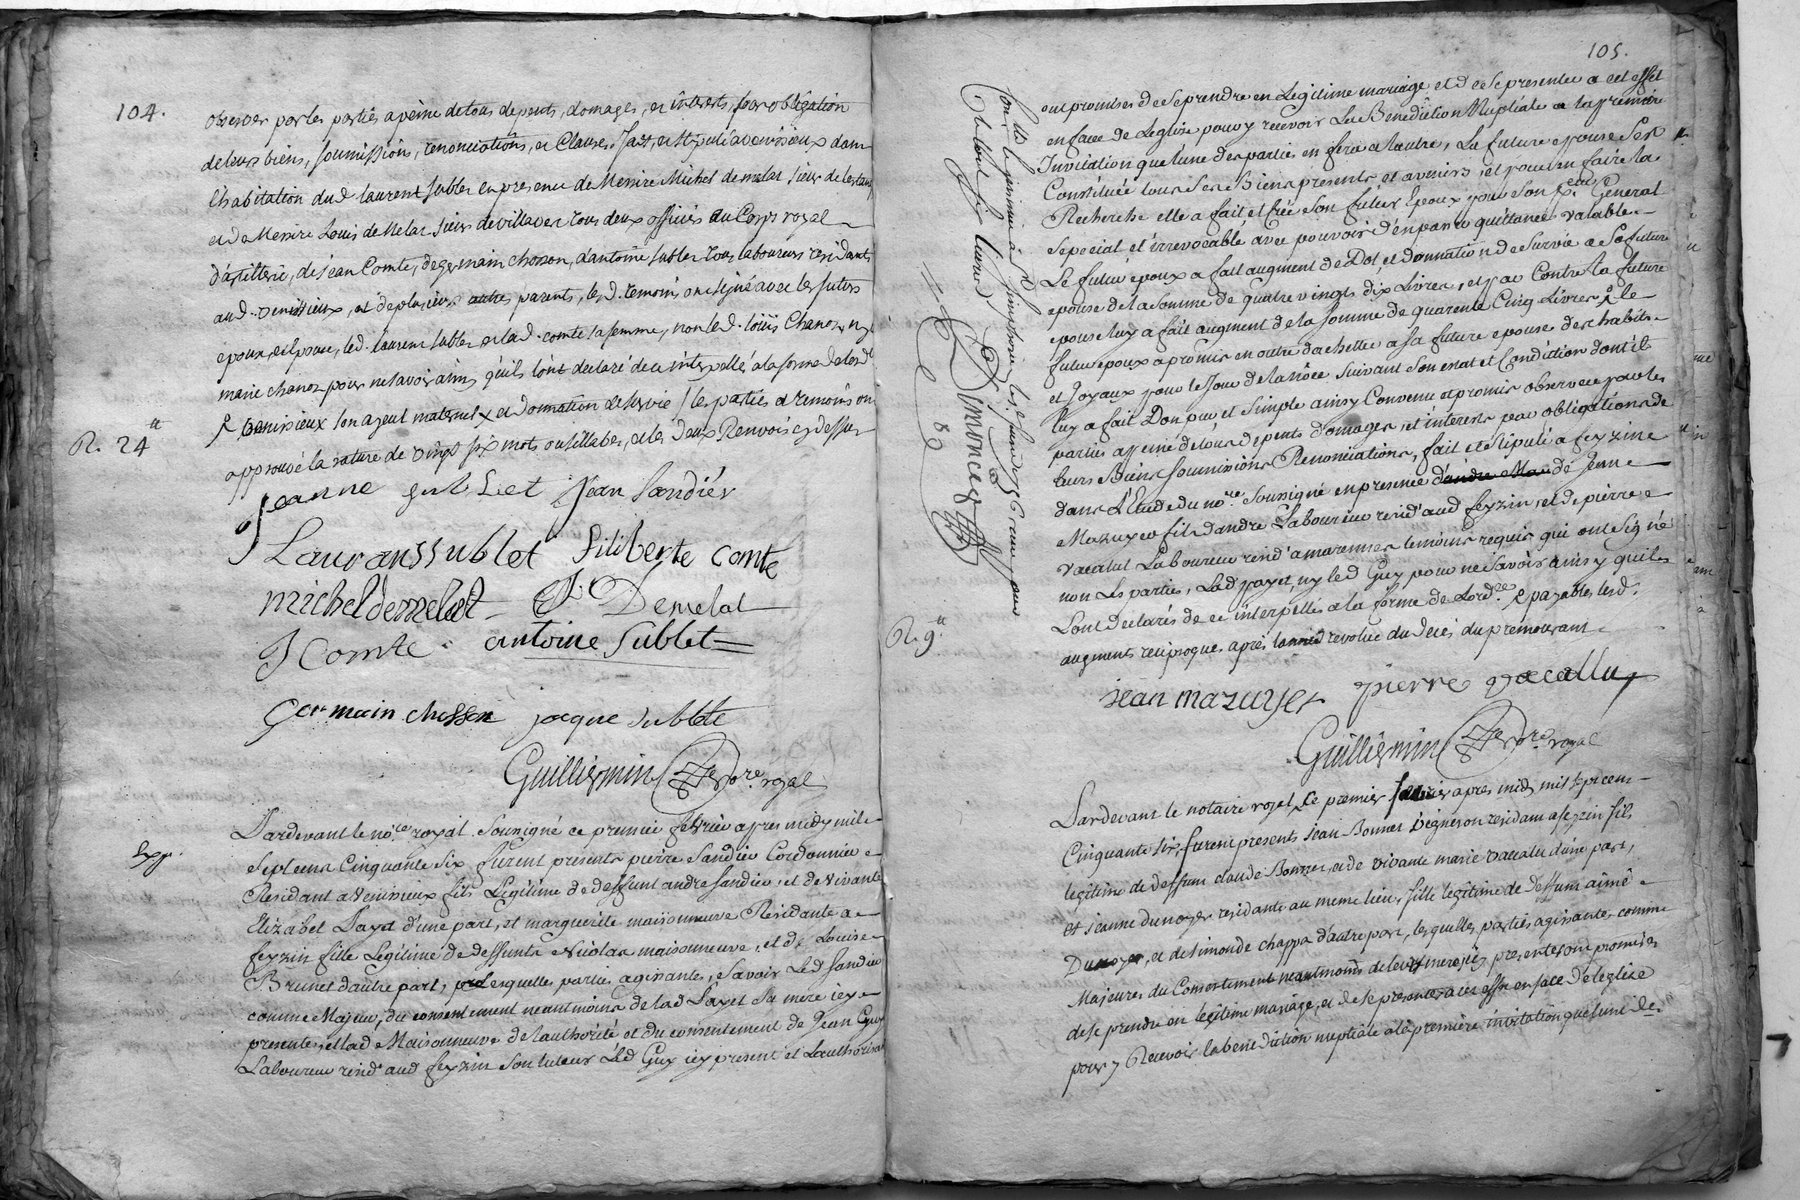 104.
observer par les parties a peine de tous depents, domages, et interests, par obligation
de leurs biens, soumissions, renonciations, et Clauses, fait, et stipulé a venissieux dans
l'habitation dud laurent sublet en presence de Messire Michel de melat sieur de
et de Messire Louis de Melat sieur de villavert tous deux officiers au Corps royal
d'artillerie, de jean Comte, de germain chosson, d'antoine sublet tous laboureurs residants
aud. venissieux, et de plusieurs autres parents, les d. temoins ont signé avec les futurs
epoux, led. laurent sublet et lad. comte sa femme, non led. loüis Chanoz, ny
marie chanoz pour ne savoir ainsi qu'ils l'ont declaré de ce interpellés a la forme de l'ord.ce
venissieux son ayeul maternel et donnation de survie / les parties et temoins ont
R. 24tt
approuvé la rature de vingt six mots ou sillabes, et les deux Renvois cy dessus
jeanne sublet jean Sandiér
Lauranssublet filiberte comte
micheldemelat Demelat
J Comte antoine Sublet
Germain chosson jacque sublete
Guilliermin No.re royal
Exp.
Pardevant le no.re royal Sousigné ce premier fevrier apres midy mil
Sept cens Cinquante Six furent presents pierre Sandier Cordonnier
Residant a Venissieux fils Legitime de deffunt andre Sandier, et de vivante
Elizabet Payet d'une part, et marguerite maisonneuve Residante a
feyzin fille Legitime de deffunts Nicolas maisonneuve, et de Louise
Brunet d'autre part, lesquelles parties agisantes, Savoir Led Sandier
comme Majeur, du consentement neantmoins de lad Payet Sa mere icy
presente, et lad Maisonneuve de l'authorité et du consentement de Jean Guy
Laboureur resid.t aud feyzin Son tuteur Led Guy icy present et L'authorisant
105.
ont promises de Se prendre en Legitime mariage et de Se presenter a cet effet
en face de Leglise pour y recevoir La Benediction Nuptiale a la premiere
Invitation que l'une des parties en fera a l'autre, La future epouse Sest
Constituée tous Ses Biens presents et avenirs, et pour en faire la
Recherche elle a fait et créé Son futur Epoux pour Son p.eur General
Special et irrevocable avec pouvoir d'en passer quittance valable
Le futur epoux a fait augment de Dot et donnation de Survie a Sa future
epouse de la Somme de quatre vingts dix Livres, et par Contre la future
epouse luy a fait augment de la Somme de quarente Cinq Livres le
futur epoux a promis en outre d'achetter a Sa future epouse des habits
et Joyaux pour le Jour de la Nôce Suivant Son estat et Condiction dont il
luy a fait Don pur et Simple ainsy Convenu et promis observer par les
parties a peine de tous depents domages, et interests par obligations de
leurs Biens Soumissions Renonciations, fait et Stipulé a feyzin
dans L'Etude du no.re Sousigné en presence de Jean
Mazuyer fils dandre Laboureur resid.t aud feyzin, et de pierre
vacalut Laboureur resid.t a marennes temoins requis qui ont Signé
non Les parties, Lad payet, ny led Guy pour ne Savoir ainsy qu'ils
Lont declarés de ce interpellés a la forme de Lord.ce payables lesd.
R. 9tt
augments reciproques apres l'année revolue du deces du premourant
jean mazuyer pierre vacallu
Guilliermin No.re royal
Pardevant le notaire royal, Ce premier fevrier apres midy mil sept cens
Cinquante Six, furent presents jean Bonnet vigneron residant a feyzin fils
legitime de deffunt claude Bonnet, et de vivante marie vacalut d'une part,
et jeanne dunoyer residante au meme lieu, fille legitime de deffunt aimé
Dunoyer, et de simonde chappa d'autre part, lesquelles parties agisantes comme
Majeures du Consentement neantmoins de leurs meres icy presentes ont promises
de se prendre en legitime mariage, et de se presenter a cet effet en face de leglise
pour y Recevoir la benediction nuptiale a la premiere invitation que l'une des